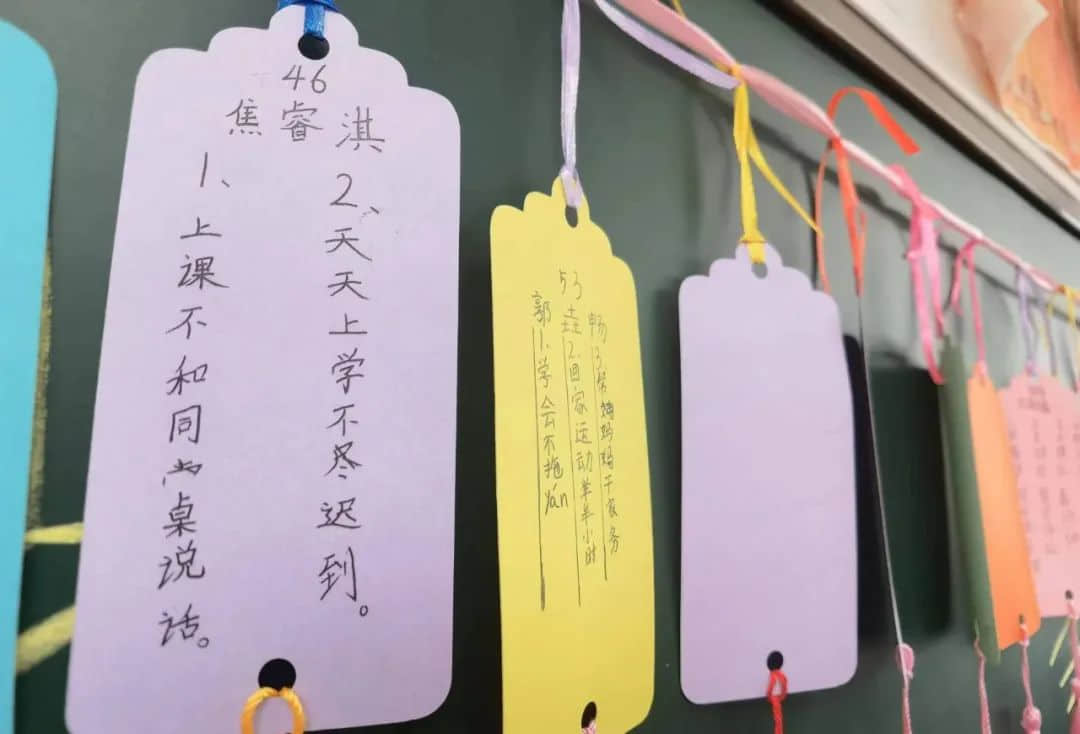 46
焦睿淇
1、上课不和同桌说话。
2、天天上学不迟到。
53
郭垚畅
1、学会不拖yán
2、回家运动半小时
3帮妈妈干家务